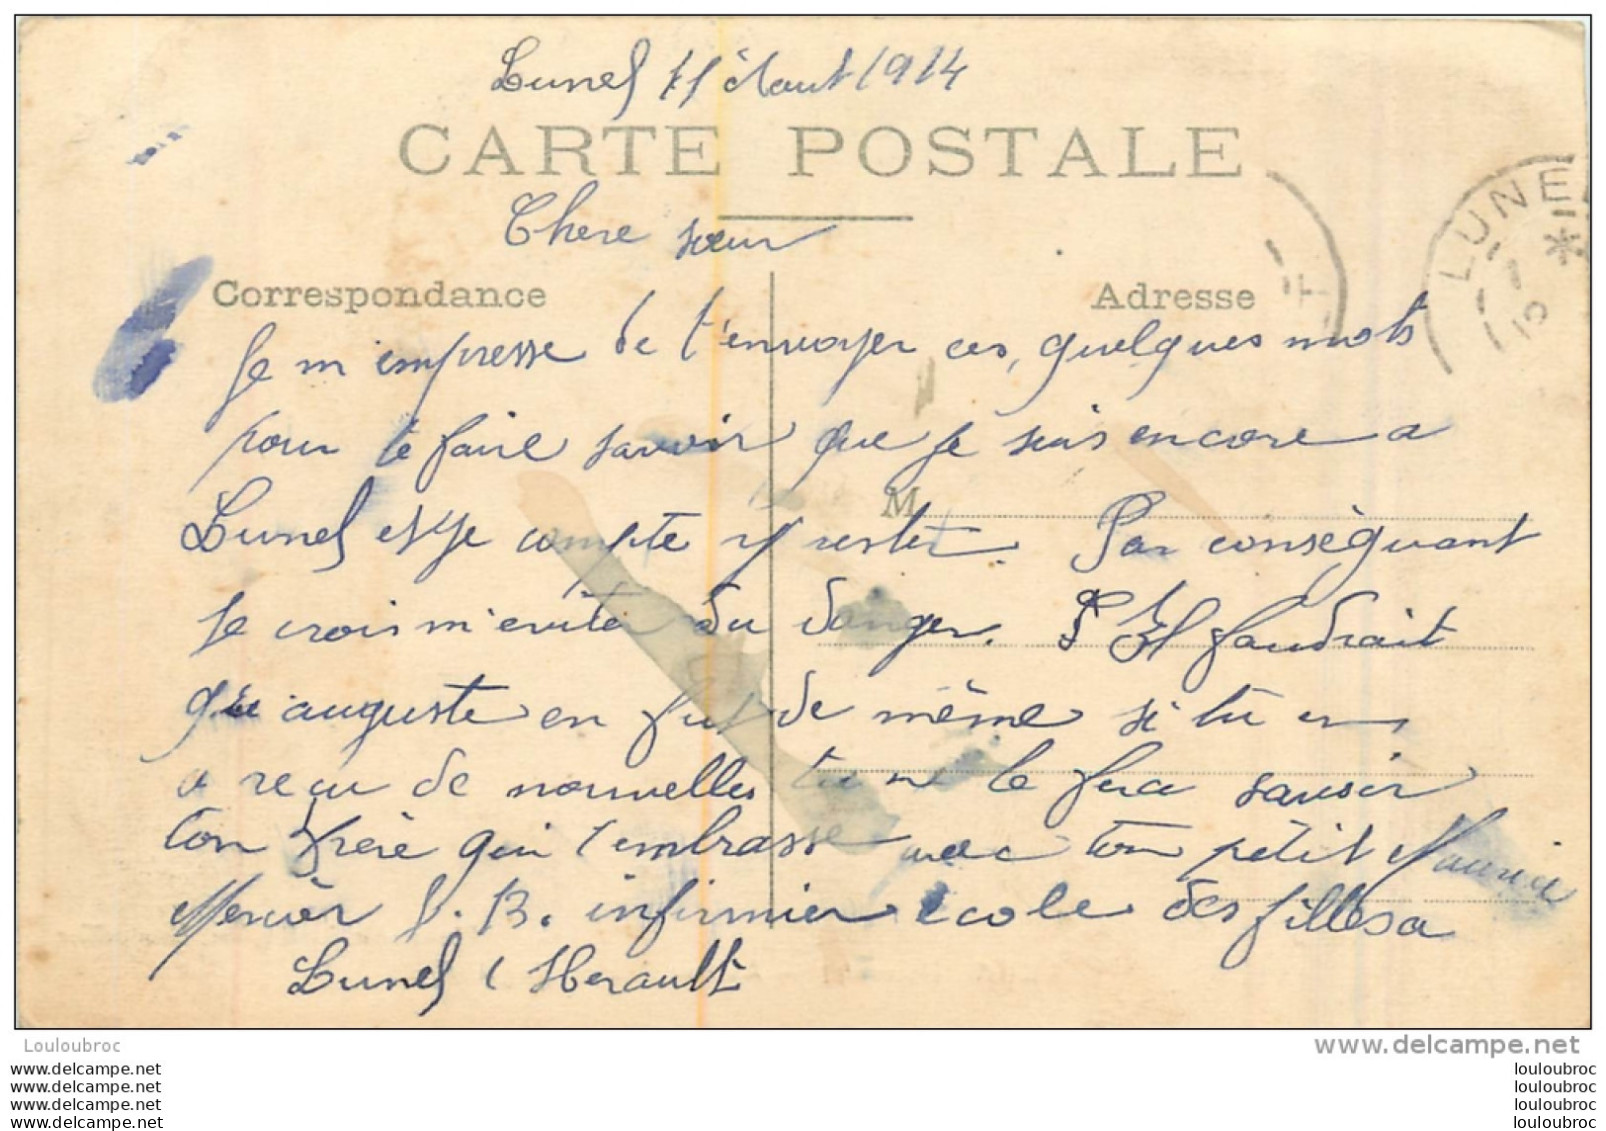 Lunel 11 Aout 1914
CARTE POSTALE
Chere sœur
LUNEL
Correspondance
Adresse
Je m'empresse de t'envoyer ces, quelques mots
pour te faire savoir que je suis encore a
M
Lunel et je compte y rester. Par conséquant
Je crois m'eviter du danger. Il faudrait
que auguste en fut de même si tu en
a reçu de nouvelles tu me le fera savoir
ton frère qui t'embrasse avec ton petit Maurice
Mercier J. B. infirmier école des filles a
Lunel (Herault
Louloubroc
www.delcampe.net
www.delcampe.net
www.delcampe.net
www.delcampe.net
www.delcampe.net
louloubroc
louloubroc
louloubroc
louloubroc